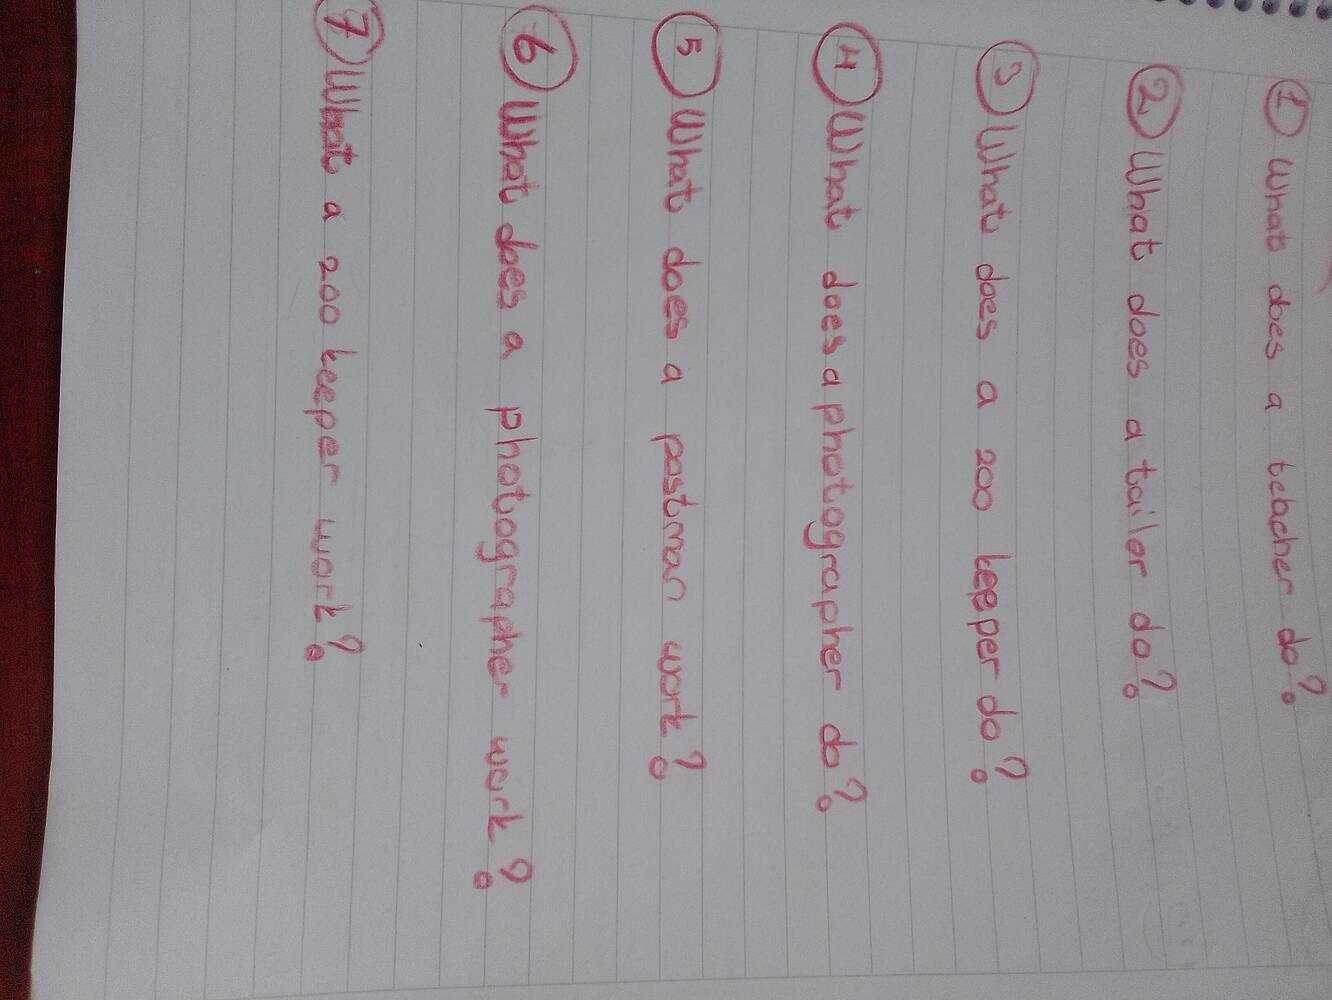 1 What does a teacher do?
2 What does a tailor do?
3 What does a zoo keeper do?
4 What does a photographer do?
5 What does a postman work?
6 What does a photographer work?
7 What a zoo keeper work?